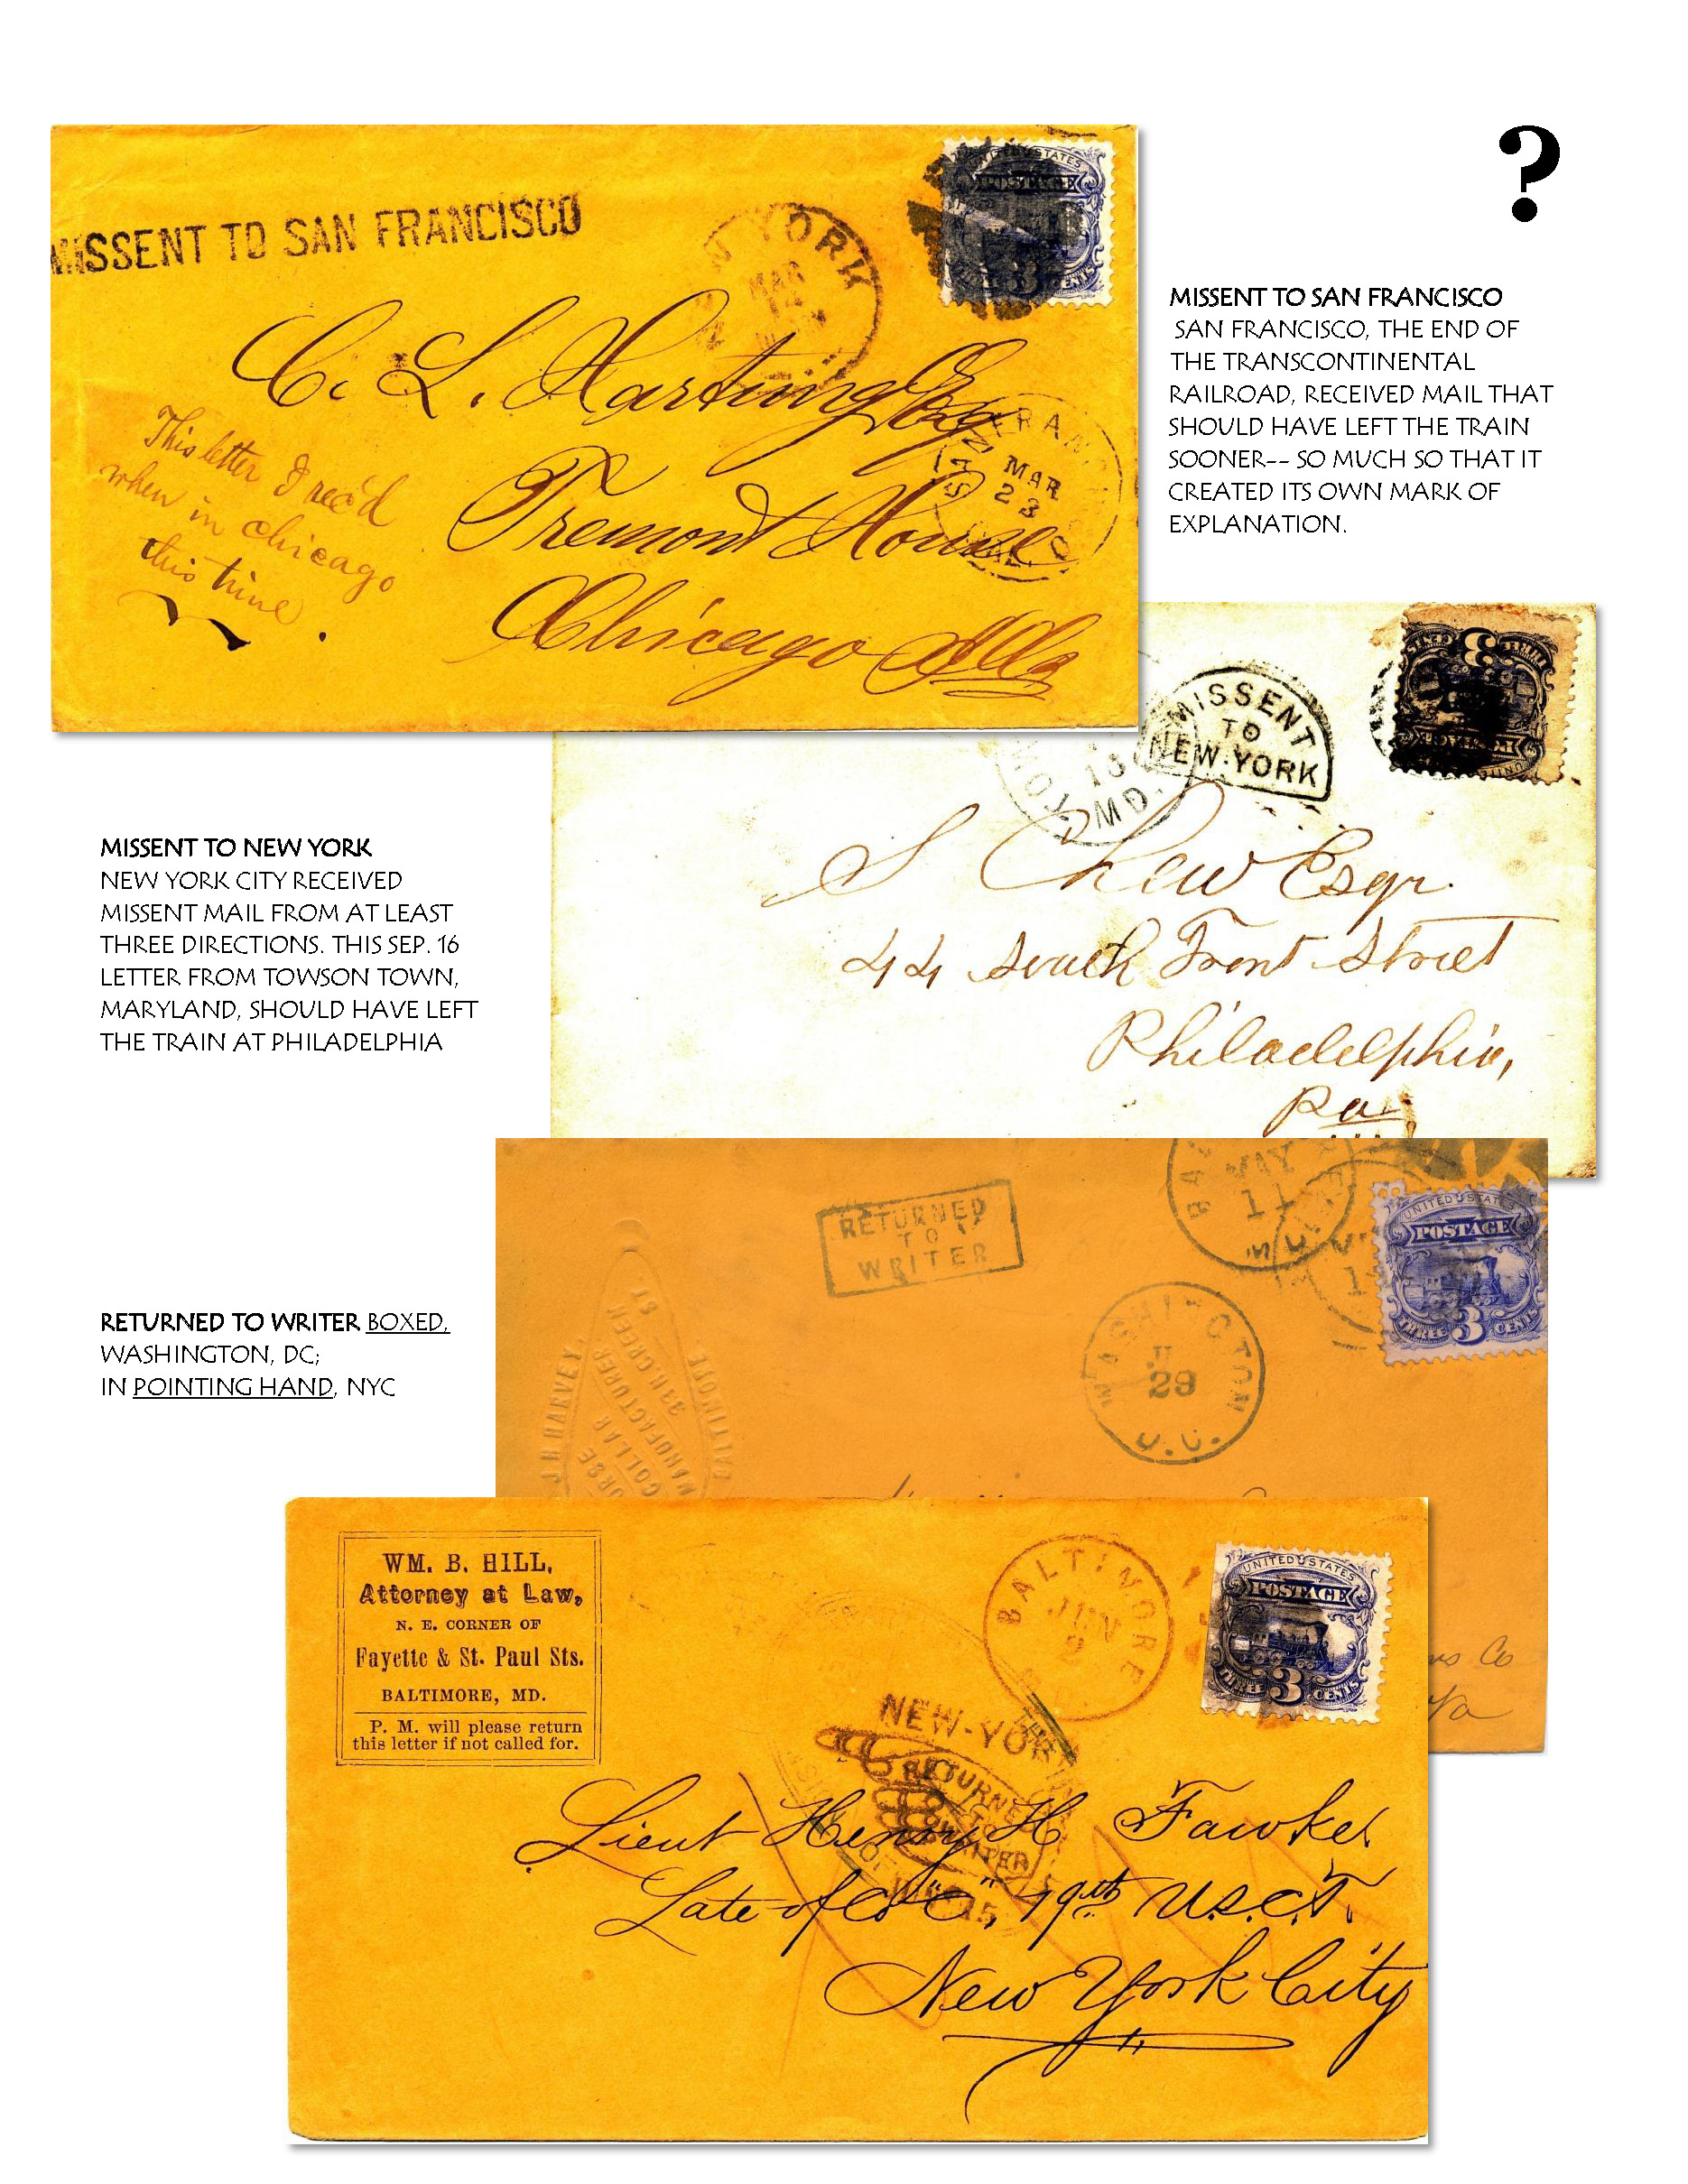 ?
MISSENT TO SAN FRANCISCO
NEW YORK
MAR
14
UNITED STATES
POSTAGE
3
CENTS
C. L. Hartung Esq
SAN FRANCISCO
MAR
23
CAL
This letter I rec'd
when in Chicago
this time.
Tremont House
Chicago Ills
MISSENT TO SAN FRANCISCO
SAN FRANCISCO, THE END OF
THE TRANSCONTINENTAL
RAILROAD, RECEIVED MAIL THAT
SHOULD HAVE LEFT THE TRAIN
SOONER-- SO MUCH SO THAT IT
CREATED ITS OWN MARK OF
EXPLANATION.
MISSENT
TO
NEW-YORK
MD.
S Chew Esqr.
44 South Front Street
Philadelphia,
Pa
MISSENT TO NEW YORK
NEW YORK CITY RECEIVED
MISSENT MAIL FROM AT LEAST
THREE DIRECTIONS. THIS SEP. 16
LETTER FROM TOWSON TOWN,
MARYLAND, SHOULD HAVE LEFT
THE TRAIN AT PHILADELPHIA
RETURNED
TO
WRITER
MAY
11
UNITED STATES
POSTAGE
THREE 3 CENTS
WASHINGTON
29
D.C.
J.H. HARVEY,
COLLAR
MANUFACTURER
33 N. GREEN ST.
BALTIMORE
Co
Va
RETURNED TO WRITER BOXED,
WASHINGTON, DC;
IN POINTING HAND, NYC
WM. B. HILL,
Attorney at Law,
N. E. CORNER OF
Fayette & St. Paul Sts.
BALTIMORE, MD.
P. M. will please return
this letter if not called for.
BALTIMORE
JUN
2
UNITED STATES
POSTAGE
THREE 3 CENTS
NEW-YORK
RETURNED
TO
WRITER
Lieut Henry H Fawkes
Late of Co "C", 19th U.S.C.T.
New York City